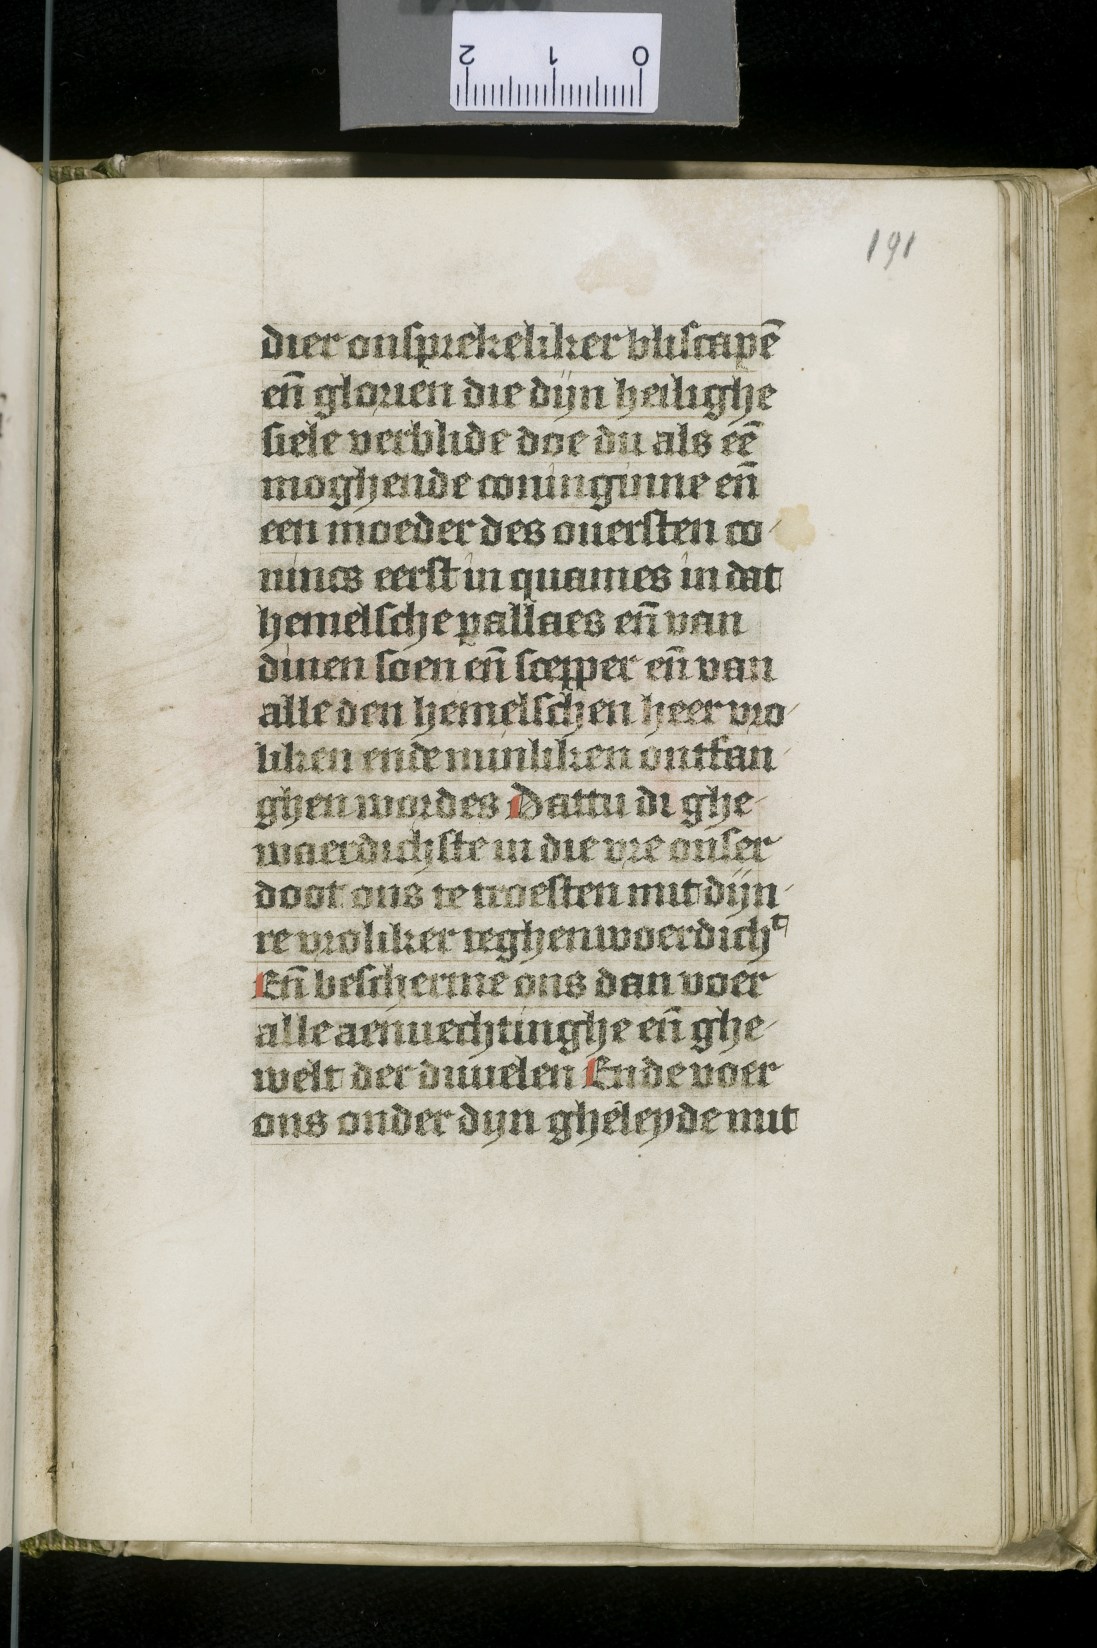 191
dier onsprekeliker bliscapē
en̄ glorien die dijn heilighe
siele verblide doe du als eē
moghende coninginne en̄
een moeder des ouersten co-
nincs eerst in quames in dat
hemelsche pallaes en̄ van
dinen soen en̄ scepper en̄ van
alle den hemelschen heer vro-
liken ende minliken ontfan-
ghen wordes Dattu di ghe-
waerdichste in die vre onser
doot ons te troesten mit dijn-
re vroliker teghenwoerdichᵗ
En̄ bescherme ons dan voer
alle aenuechtinghe en̄ ghe-
welt der duuelen Ende voer
ons onder dijn gheleyde mit
2 1 0